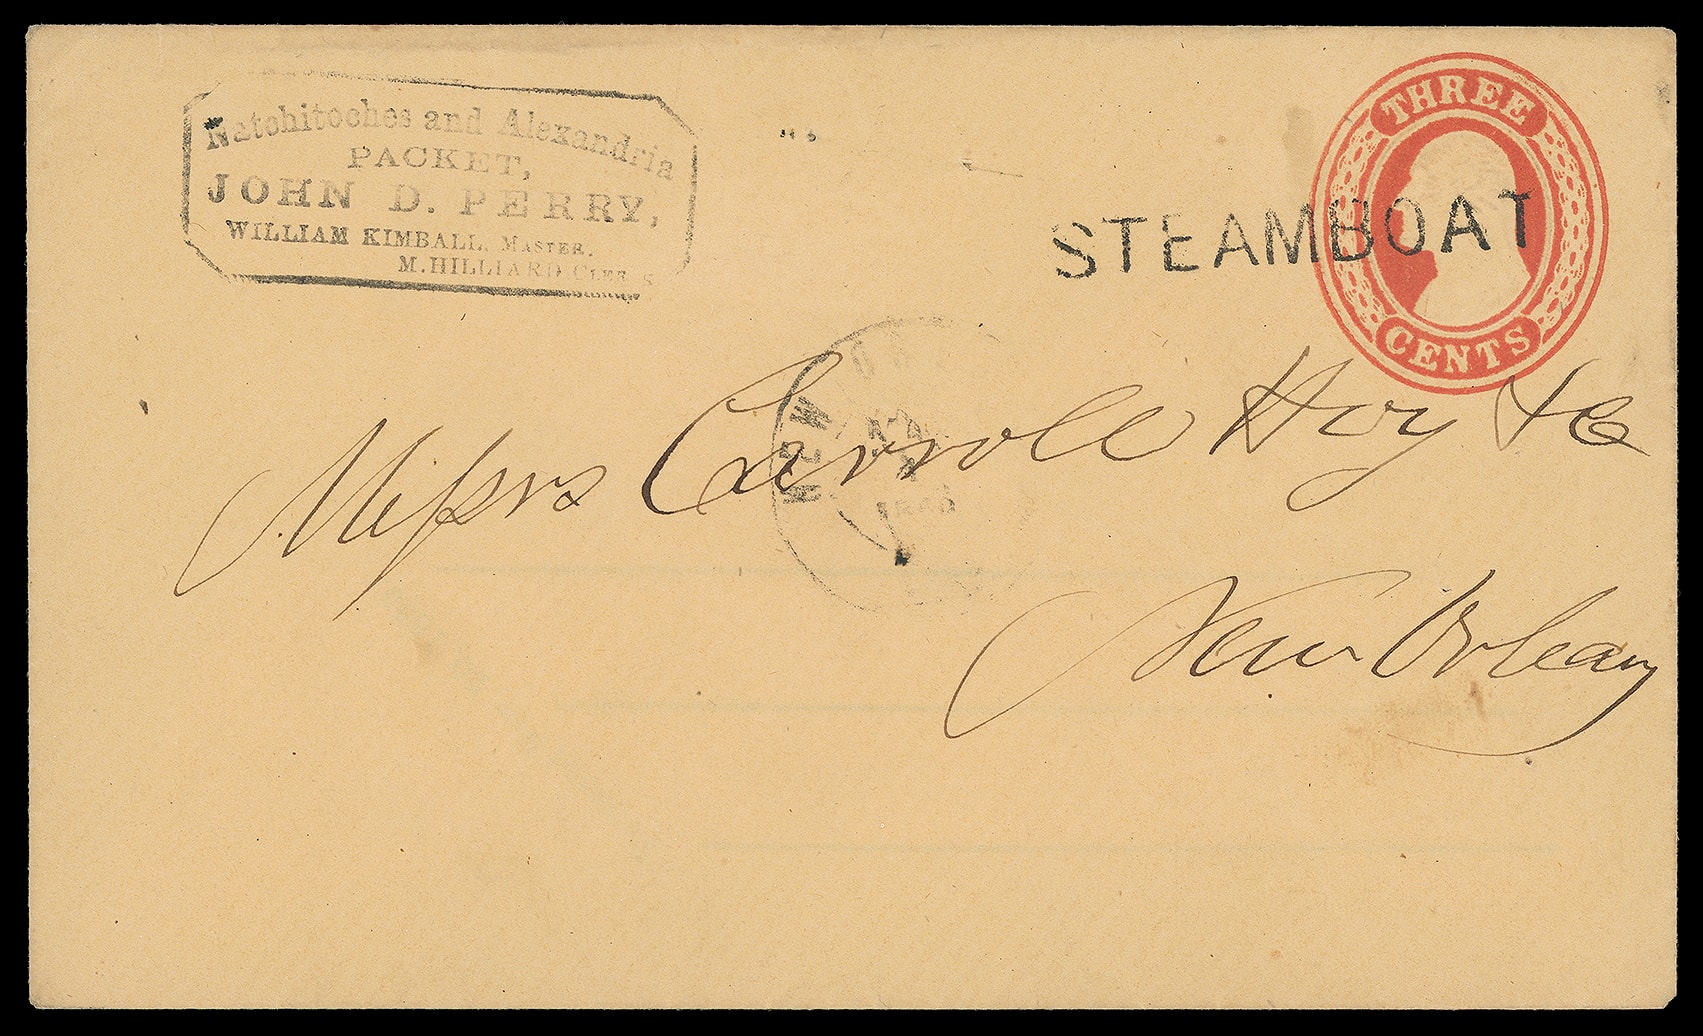 Natchitoches and Alexandria
PACKET,
JOHN D. PERRY,
WILLIAM KIMBALL, MASTER.
M. HILLIARD CLERK
THREE
CENTS
STEAMBOAT
NEW
Messrs Carroll Hoy & Co
New Orleans